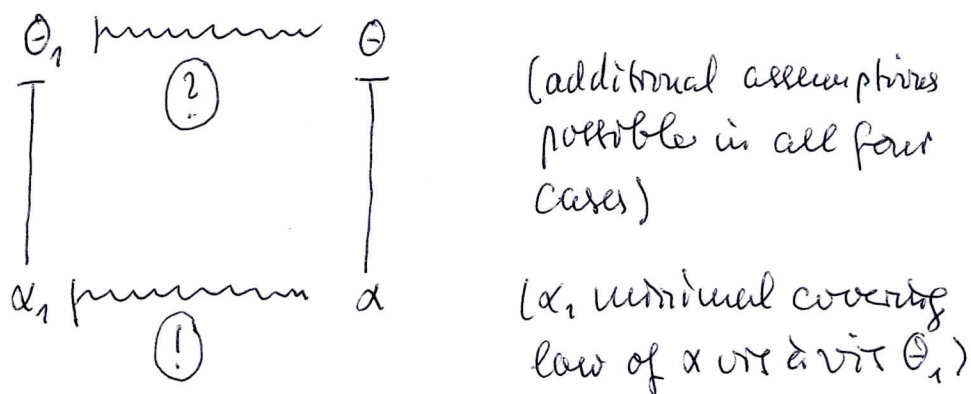 Θ₁ Θ
?
(additional assumptions
possible in all four
cases)
α₁ α
!
(α₁ minimal covering
law of α vis à vis Θ₁)